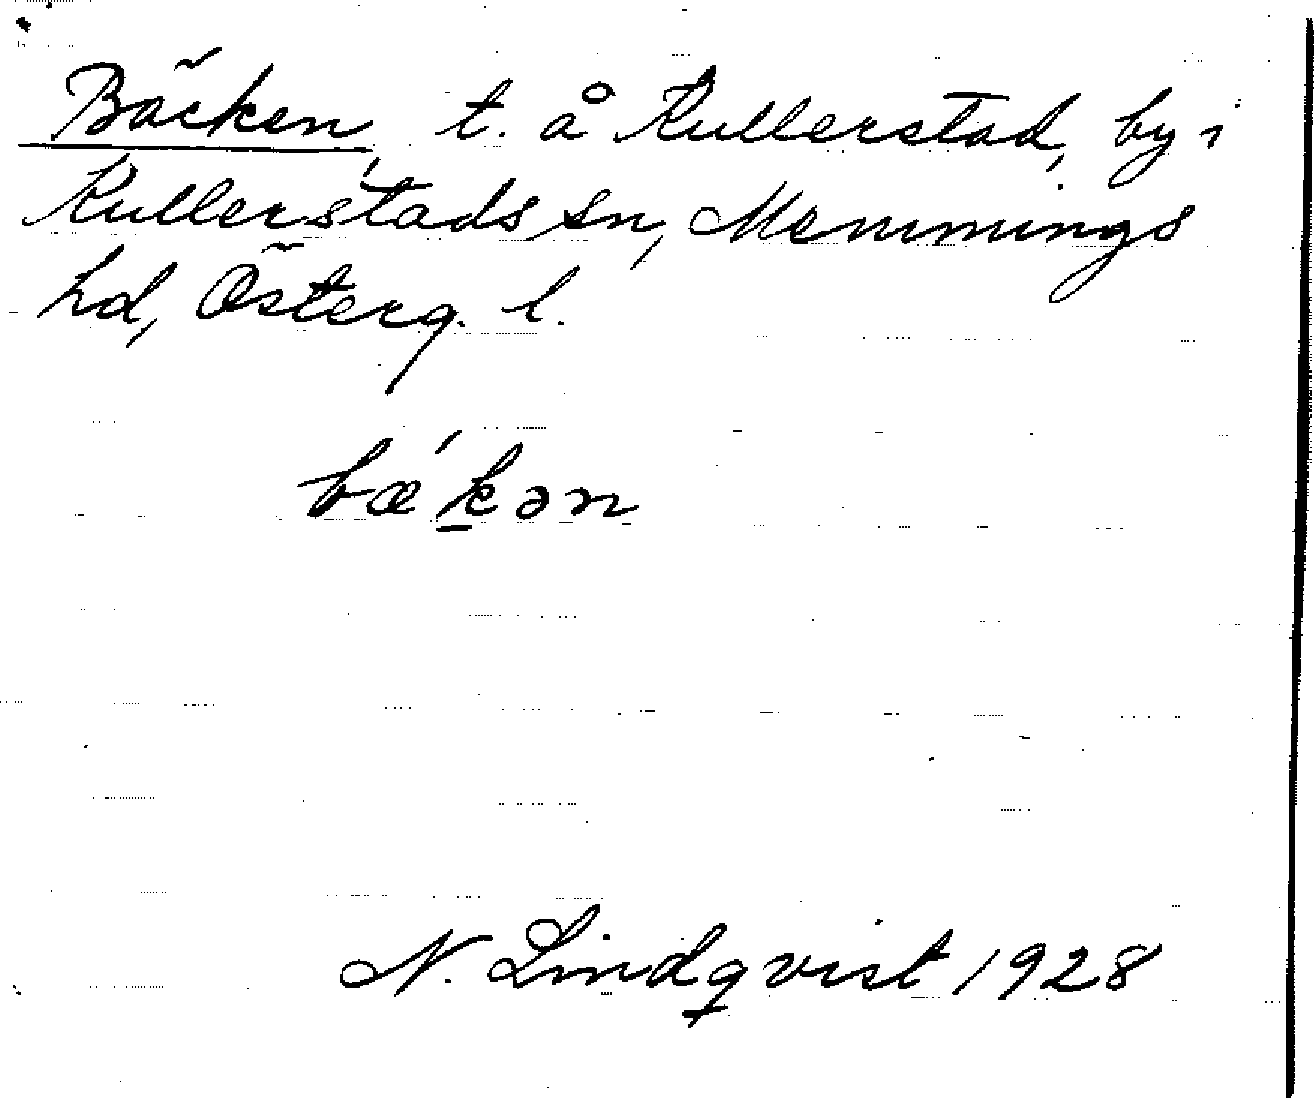 Bäcken, t. å Kullerstad, by i
Kullerstads sn, Memmings
hd, Österg. l.
bǽk̲ən
N. Lindqvist 1928